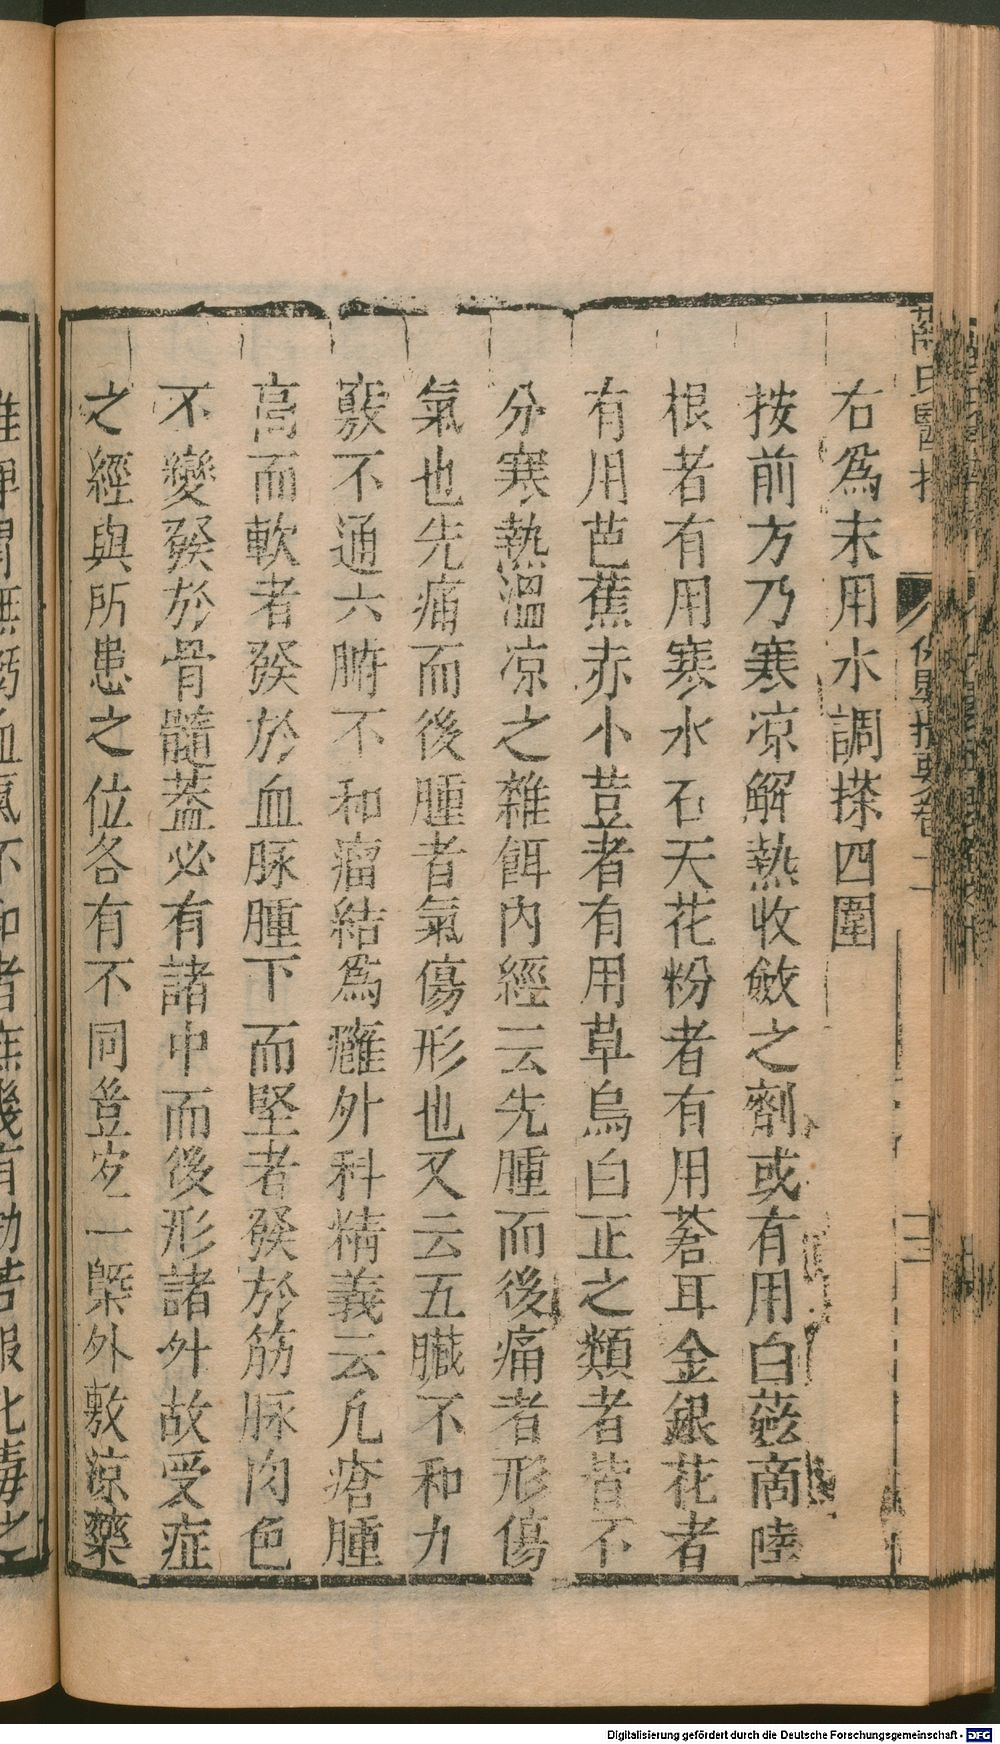 右爲末用水調搽四圍
按前方乃寒凉解熱收斂之劑或有用白蘞商陸
根者有用寒水石天花粉者有用蒼耳金銀花者
有用芭蕉赤小荳者有用草烏白芷之類者皆不
分寒熱溫凉之雜餌內經云先腫而後痛者形傷
氣也先痛而後腫者氣傷形也又云五臟不和九
竅不通六腑不和瘤結爲癰外科精義云凡瘡腫
高而軟者發於血脉腫下而堅者發於筋脉肉色
不變發於骨髓葢必有諸中而後形諸外故受症
之經與所患之位各有不同豈宜一槩外敷涼藥
Digitalisierung gefördert durch die Deutsche Forschungsgemeinschaft - DFG